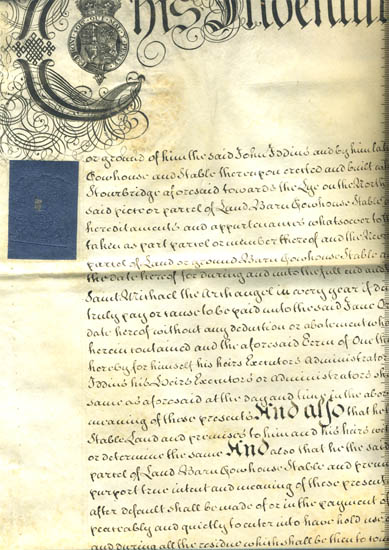 This Indentur
or ground of him the said John Iddins and by him late
Cowhouse and Stable thereupon erected and built co
Stourbridge aforesaid towards the Lye on the North
said piece or parcel of Land Barn Cowhouse Stable a
hereditaments and appurtenances whatsoever to t
taken as part parcel or member thereof and the Rever
parcel of Land or ground Barn Cowhouse Stable a
the date hereof for during and unto the full end and
Saint Michael the Archangel in every year if de
truly pay or cause to be paid unto the said Jane Or
date hereof without any deduction or abatement wh
herein contained and the aforesaid Term of One th
hereby for himself his heirs Executors Administrator
Iddins his Heirs Executors or Administrators sh
same as aforesaid at the day and time in the abov
meaning of these presents And also that he
Stable Land and premises to him and his heirs
or determine the same And also that he the said
parcel of Land Barn Cowhouse Stable and prem
purport true intent and meaning of these present
after default shall be made of or in the payment o
peaceably and quietly to enter into have hold use
and during all the residue which shall be then to